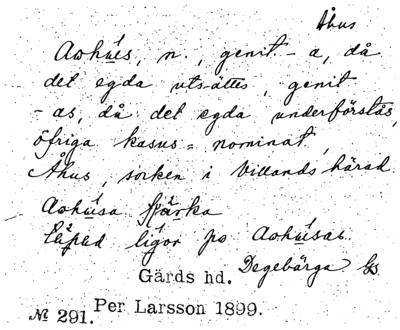 Åhus
Aohúis, n., genit. - a, då
det egda utsättes, genit
- as, då det egda underförstås,
öfriga kasus = nominat,
Åhus, socken i Villands härad.
Aohúisa tjärka
ligor po Aohúisar
Gärds hd. Degebärga Gs
Per Larsson 1899.
№ 291.